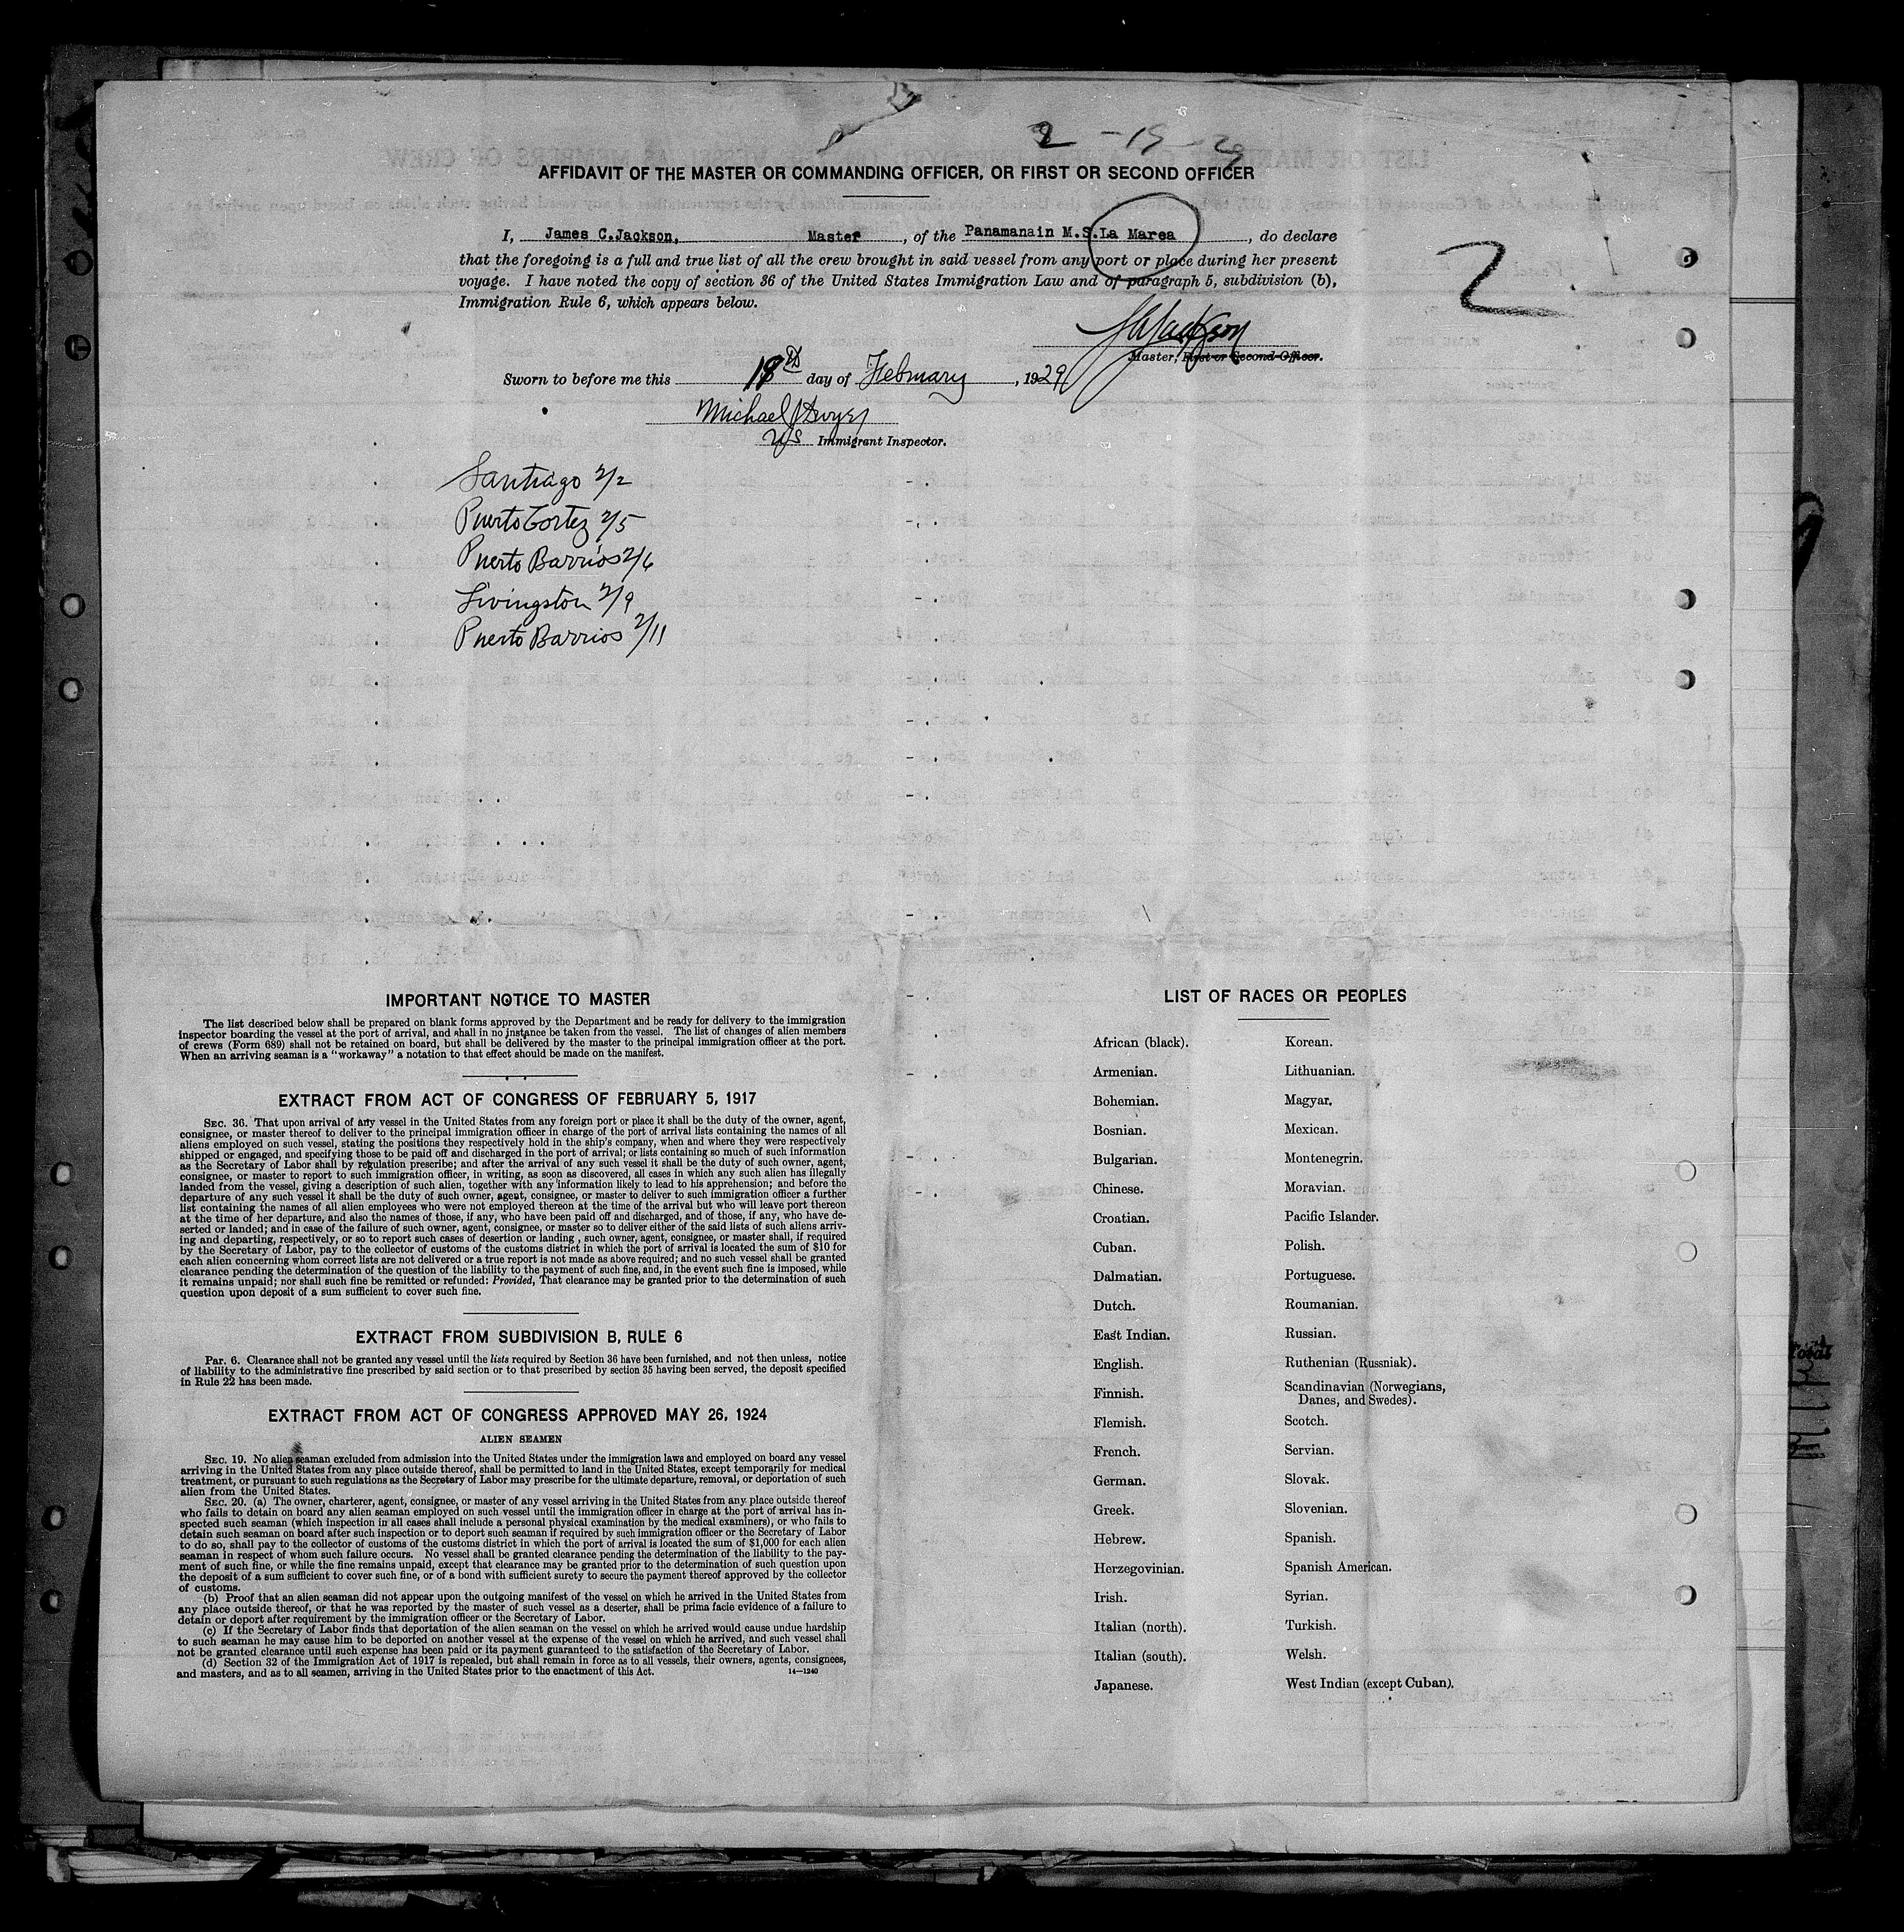 2 - 19 - 29
AFFIDAVIT OF THE MASTER OR COMMANDING OFFICER, OR FIRST OR SECOND OFFICER
I, James C.Jackson, Master, of the Panamanain M.S.La Marea, do declare
that the foregoing is a full and true list of all the crew brought in said vessel from any port or place during her present
voyage. I have noted the copy of section 36 of the United States Immigration Law and of paragraph 5, subdivision (b),
Immigration Rule 6, which appears below.
2
Jackson
Master, First or Second Officer.
Sworn to before me this 18th day of February, 1929
Michael J Dwyer
US Immigrant Inspector.
Santiago 2/2
Puerto Cortez 2/5
Puerto Barrios 2/6
Livingston 2/9
Puerto Barrios 2/11
IMPORTANT NOTICE TO MASTER
The list described below shall be prepared on blank forms approved by the Department and be ready for delivery to the immigration
inspector boarding the vessel at the port of arrival, and shall in no instance be taken from the vessel. The list of changes of alien members
of crews (Form 689) shall not be retained on board, but shall be delivered by the master to the principal immigration officer at the port.
When an arriving seaman is a "workaway" a notation to that effect should be made on the manifest.
EXTRACT FROM ACT OF CONGRESS OF FEBRUARY 5, 1917
SEC. 36. That upon arrival of any vessel in the United States from any foreign port or place it shall be the duty of the owner, agent,
consignee, or master thereof to deliver to the principal immigration officer in charge of the port of arrival lists containing the names of all
aliens employed on such vessel, stating the positions they respectively hold in the ship's company, when and where they were respectively
shipped or engaged, and specifying those to be paid off and discharged in the port of arrival; or lists containing so much of such information
as the Secretary of Labor shall by regulation prescribe; and after the arrival of any such vessel it shall be the duty of such owner, agent,
consignee, or master to report to such immigration officer, in writing, as soon as discovered, all cases in which any such alien has illegally
landed from the vessel, giving a description of such alien, together with any information likely to lead to his apprehension; and before the
departure of any such vessel it shall be the duty of such owner, agent, consignee, or master to deliver to such immigration officer a further
list containing the names of all alien employees who were not employed thereon at the time of the arrival but who will leave port thereon
at the time of her departure, and also the names of those, if any, who have been paid off and discharged, and of those, if any, who have de-
serted or landed; and in case of the failure of such owner, agent, consignee, or master so to deliver either of the said lists of such aliens arriv-
ing and departing, respectively, or so to report such cases of desertion or landing , such owner, agent, consignee, or master shall, if required
by the Secretary of Labor, pay to the collector of customs of the customs district in which the port of arrival is located the sum of $10 for
each alien concerning whom correct lists are not delivered or a true report is not made as above required; and no such vessel shall be granted
clearance pending the determination of the question of the liability to the payment of such fine, and, in the event such fine is imposed, while
it remains unpaid; nor shall such fine be remitted or refunded: Provided, That clearance may be granted prior to the determination of such
question upon deposit of a sum sufficient to cover such fine.
EXTRACT FROM SUBDIVISION B, RULE 6
Par. 6. Clearance shall not be granted any vessel until the lists required by Section 36 have been furnished, and not then unless, notice
of liability to the administrative fine prescribed by said section or to that prescribed by section 35 having been served, the deposit specified
in Rule 22 has been made.
EXTRACT FROM ACT OF CONGRESS APPROVED MAY 26, 1924
ALIEN SEAMEN
SEC. 19. No alien seaman excluded from admission into the United States under the immigration laws and employed on board any vessel
arriving in the United States from any place outside thereof, shall be permitted to land in the United States, except temporarily for medical
treatment, or pursuant to such regulations as the Secretary of Labor may prescribe for the ultimate departure, removal, or deportation of such
alien from the United States.
SEC. 20. (a) The owner, charterer, agent, consignee, or master of any vessel arriving in the United States from any place outside thereof
who fails to detain on board any alien seaman employed on such vessel until the immigration officer in charge at the port of arrival has in-
spected such seaman (which inspection in all cases shall include a personal physical examination by the medical examiners), or who fails to
detain such seaman on board after such inspection or to deport such seaman if required by such immigration officer or the Secretary of Labor
to do so, shall pay to the collector of customs of the customs district in which the port of arrival is located the sum of $1,000 for each alien
seaman in respect of whom such failure occurs. No vessel shall be granted clearance pending the determination of the liability to the pay-
ment of such fine, or while the fine remains unpaid, except that clearance may be granted prior to the determination of such question upon
the deposit of a sum sufficient to cover such fine, or of a bond with sufficient surety to secure the payment thereof approved by the collector
of customs.
(b) Proof that an alien seaman did not appear upon the outgoing manifest of the vessel on which he arrived in the United States from
any place outside thereof, or that he was reported by the master of such vessel as a deserter, shall be prima facie evidence of a failure to
detain or deport after requirement by the immigration officer or the Secretary of Labor.
(c) If the Secretary of Labor finds that deportation of the alien seaman on the vessel on which he arrived would cause undue hardship
to such seaman he may cause him to be deported on another vessel at the expense of the vessel on which he arrived, and such vessel shall
not be granted clearance until such expense has been paid or its payment guaranteed to the satisfaction of the Secretary of Labor.
(d) Section 32 of the Immigration Act of 1917 is repealed, but shall remain in force as to all vessels, their owners, agents, consignees,
and masters, and as to all seamen, arriving in the United States prior to the enactment of this Act. 14—1240
LIST OF RACES OR PEOPLES
African (black). Korean.
Armenian. Lithuanian.
Bohemian. Magyar.
Bosnian. Mexican.
Bulgarian. Montenegrin.
Chinese. Moravian.
Croatian. Pacific Islander.
Cuban. Polish.
Dalmatian. Portuguese.
Dutch. Roumanian.
East Indian. Russian.
English. Ruthenian (Russniak).
Finnish. Scandinavian (Norwegians,
Danes, and Swedes).
Flemish. Scotch.
French. Servian.
German. Slovak.
Greek. Slovenian.
Hebrew. Spanish.
Herzegovinian. Spanish American.
Irish. Syrian.
Italian (north). Turkish.
Italian (south). Welsh.
Japanese. West Indian (except Cuban).
Total